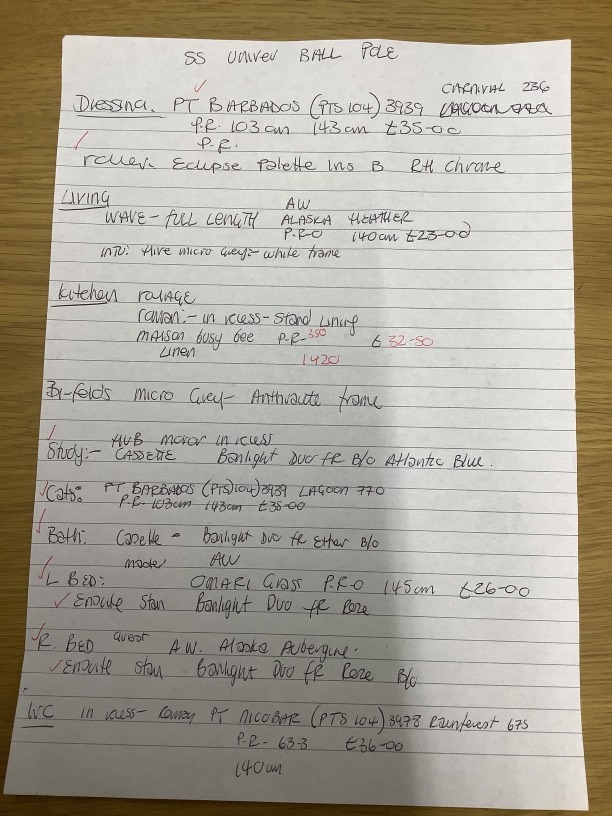 SS univer BALL Pole
CARNIVAL 236
Dressing. PT BARBADOS (PTS 104) 3939
P.R. 103cm 143cm £35-00
P.R.
roller:- Eclipse Palette Ins B RH Chrome
Living AW
WAVE - full LENGTH ALASKA HEATHER
P.R.O 140cm £23-00
INTU: Hive micro Grey:- white frame
Kitchen
roman:- in recess - Stand Lining
Maison busy bee P.R- 350 £ 32-50
Linen 1420
Bi-folds micro Grey - Anthracite frame
HUB motor in recess
Study:- CASSETTE Banlight Duo FR B/o Atlantic Blue.
Cats: PT BARBADOS (PTS 104) 3939 LAGOON 770
P.R. 103cm 143cm £35-00
Bath: Casette - Banlight Duo FR Ether B/o
AW
L BED: OMARI Grass P.R.O 145cm £26-00
Ensuite Stan Banlight Duo FR Roze
R BED guest A.W. Alaska Aubergine.
Ensuite Stan Banlight Duo FR Roze B/o
WC in recess - Roman PT NICOBAR (PTS 104) 3978 Rainforest 675
P.R- 63-3 £36-00
140cm